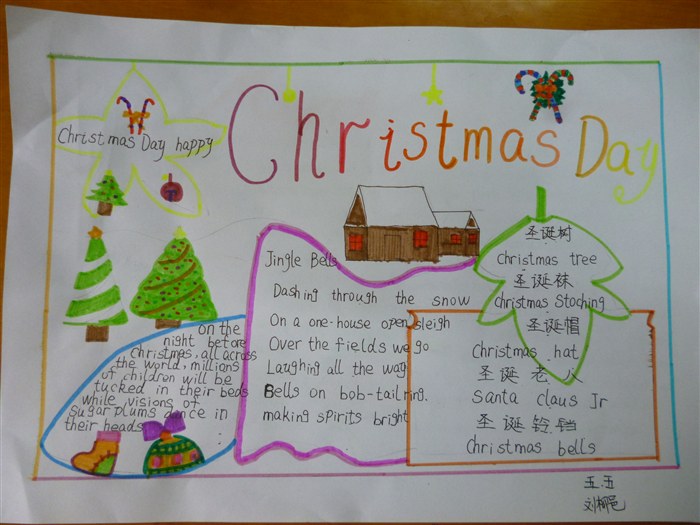 Christmas Day
Christmas Day happy
on the
night before
christmas, all across
the world, millions
of children will be
tucked in their beds
while ,visions of
sugar plums dance in
their heads
Jingle Bells
Dashing through the snow
On a one-house open sleigh
Over the fields we go
Laughing all the way
Bells on bob-tail ring.
making spirits bright
圣诞树
christmas tree
圣诞袜
christmas Stoching
圣诞帽
Christmas hat
圣诞老人
Santa claus Jr
圣诞铃铛
Christmas bells
五.五
刘柳邑